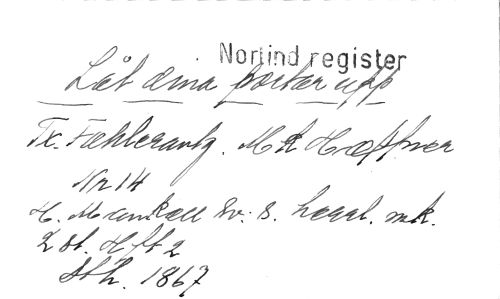 Nortind register
Låt dina portar upp
Tx. Fahlcrantz. Mk Hæffner
Nr 14
H. Mankell Sv. s. mk.
2 st. Hft 2
Sth. 1867